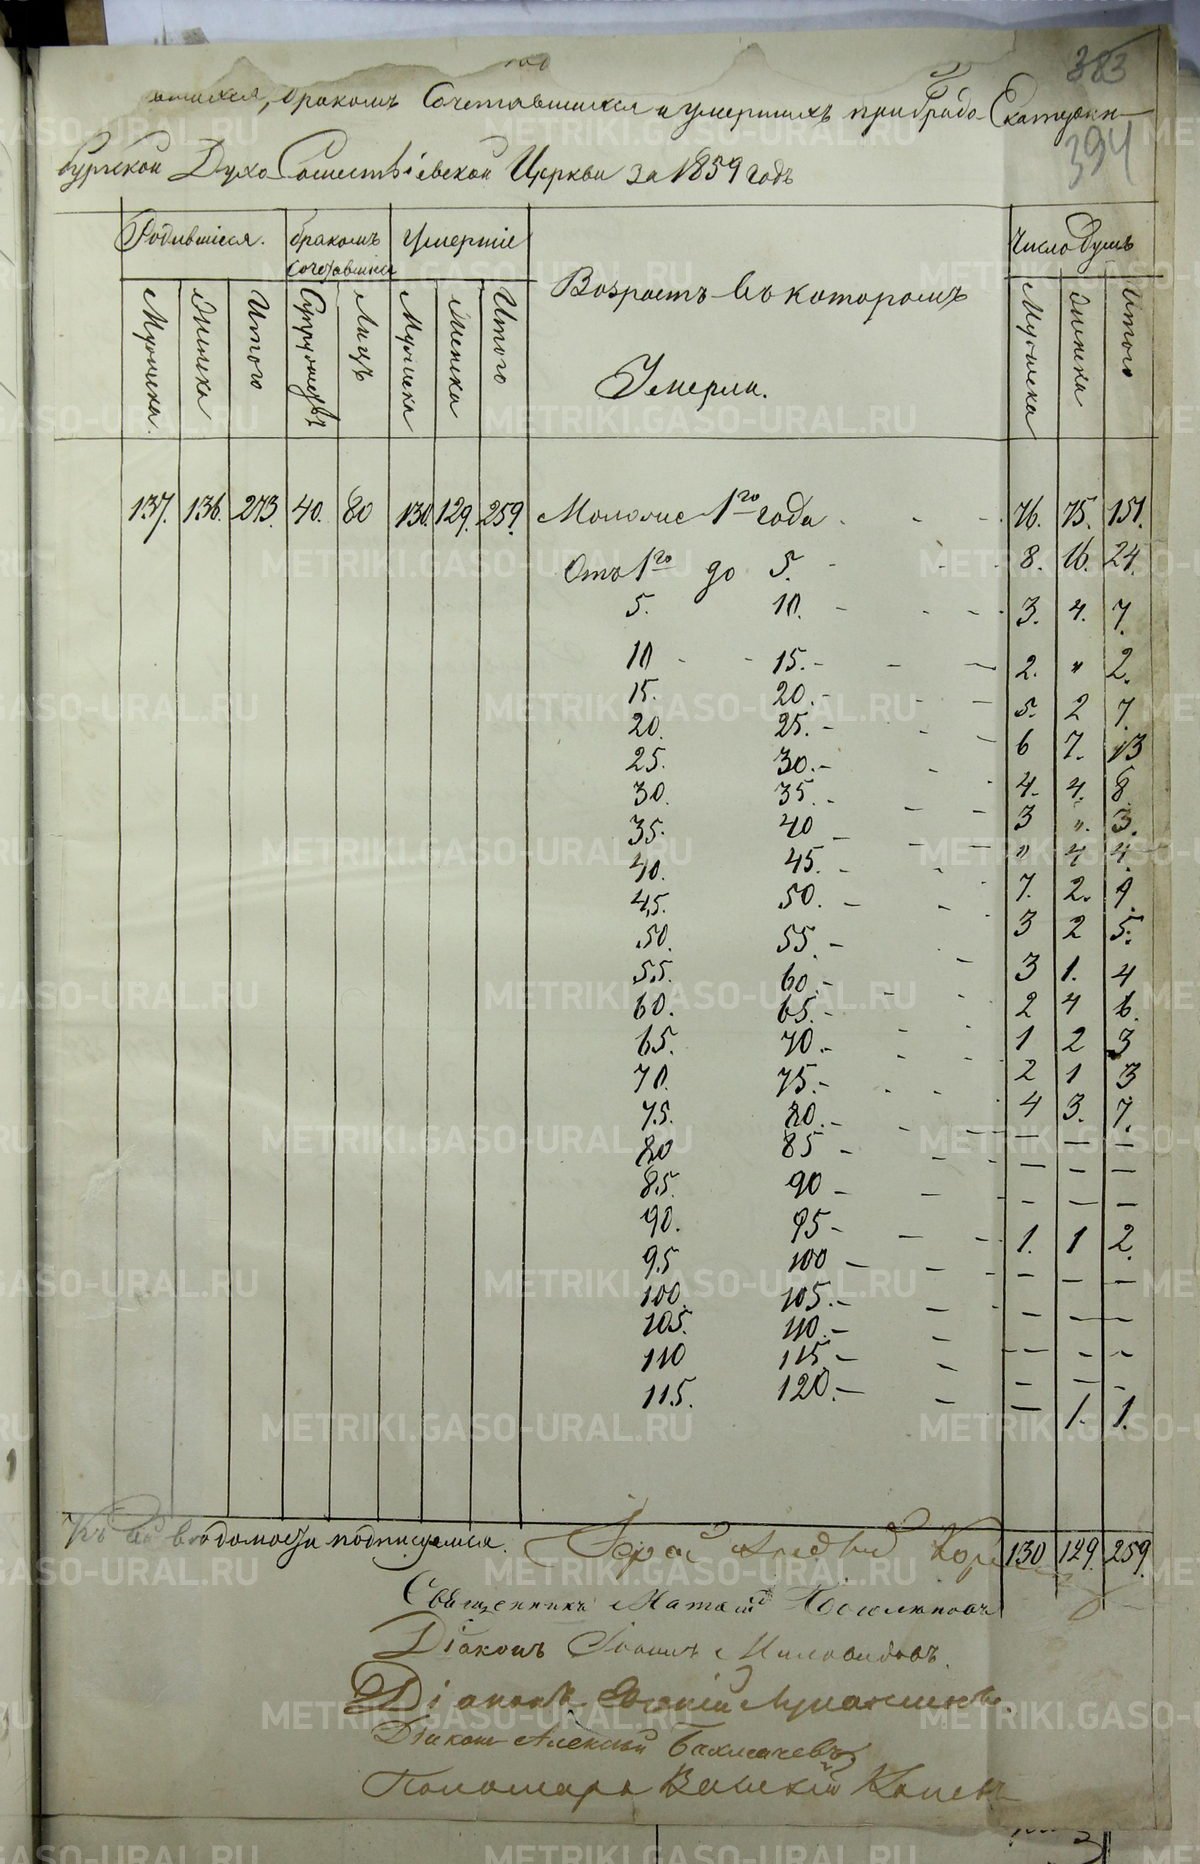 383
394
бракомъ Сочетавшихся и умершихъ при Градо-Екатерин-
бургской Духо Сошествіевской Церкви за 1859 годъ
Родившіеся. бракомъ сочетавшихся умершіе Возрастъ въ которомъ Умерли. Число душъ
Мужеска. Женска Итого Супружествъ Лицъ Мужеска Женска Итого Мужеска Женска Итого
137. 136. 273. 40. 80 130. 129. 259. Моложе 1го года 76. 75. 151.
Отъ 1го до 5. 8. 16. 24.
5. 10. 3. 4. 7.
10 15. 2. " 2.
15. 20. 5. 2 7.
20. 25. 6 7. 13
25. 30. 4. 4. 8
30. 35. 3 ". 3.
35. 40 " 4 4.
40. 45. 7. 2. 9.
45. 50. 3 2 5.
50. 55. 3 1. 4
55. 60. 2 4 6.
60. 65. 1 2 3
65. 70. 2 1 3
70. 75. 4 3. 7.
75. 80. — — —
80 85 — — —
85. 90 — — —
90. 95 1. 1 2.
95 100 — — —
100. 105. — — —
105. 110. — — —
110 115. — — —
115. 120. — 1. 1.
130 129. 259.
Къ сей ведомости подписуемся.
Священникъ
Діаконъ Іоаннъ Миловидовъ.
Діаконъ
Діаконъ Алексій
Пономарь
METRIKI.GASO-URAL.RU